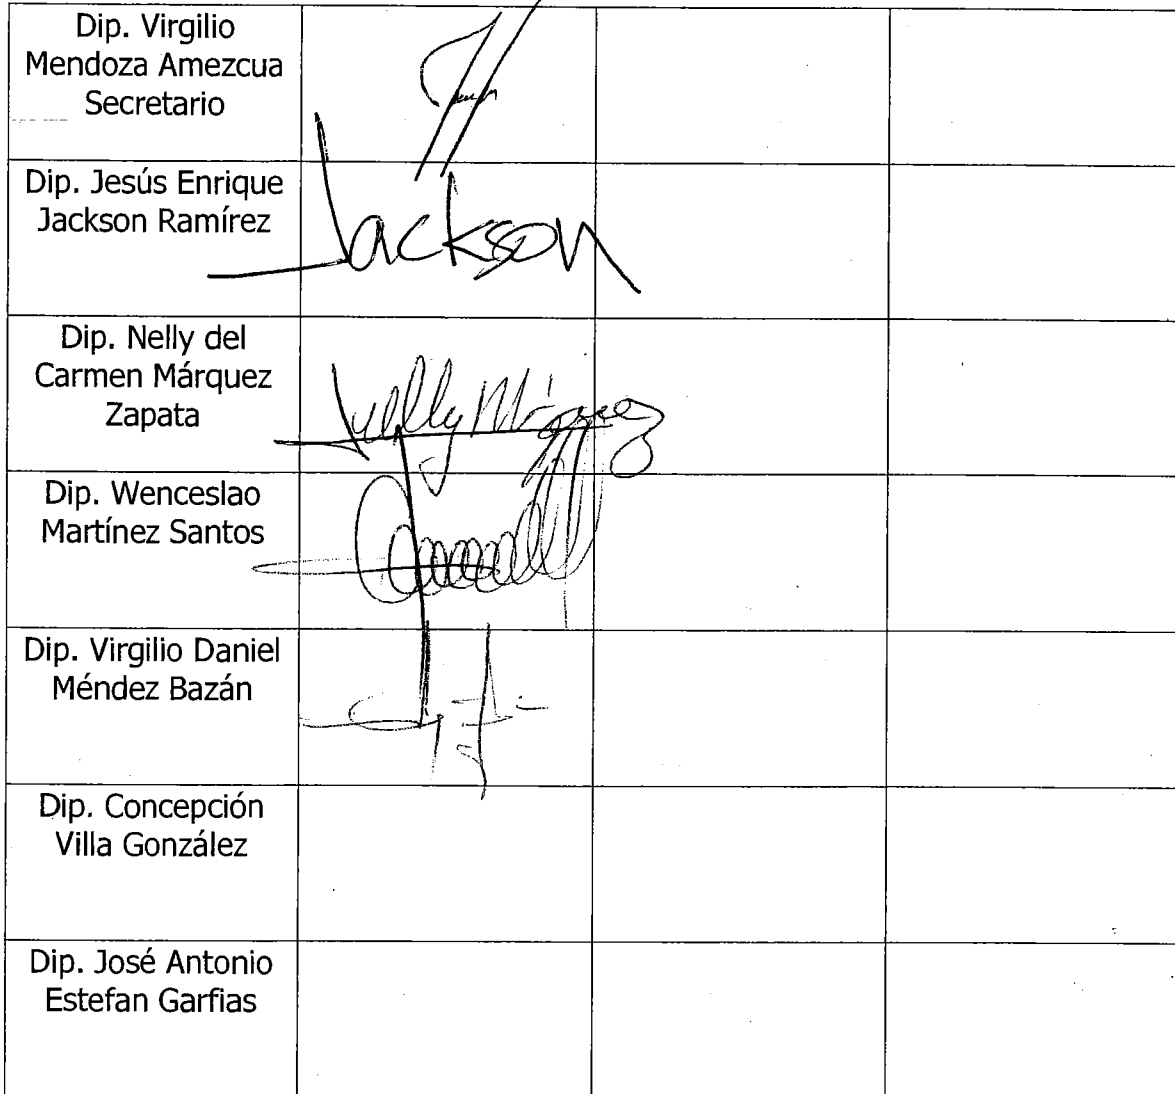 Dip. Virgilio
Mendoza Amezcua
Secretario
Dip. Jesús Enrique
Jackson Ramírez
Jackson
Dip. Nelly del
Carmen Márquez
Zapata
Nelly Márquez
Dip. Wenceslao
Martínez Santos
Dip. Virgilio Daniel
Méndez Bazán
Dip. Concepción
Villa González
Dip. José Antonio
Estefan Garfias